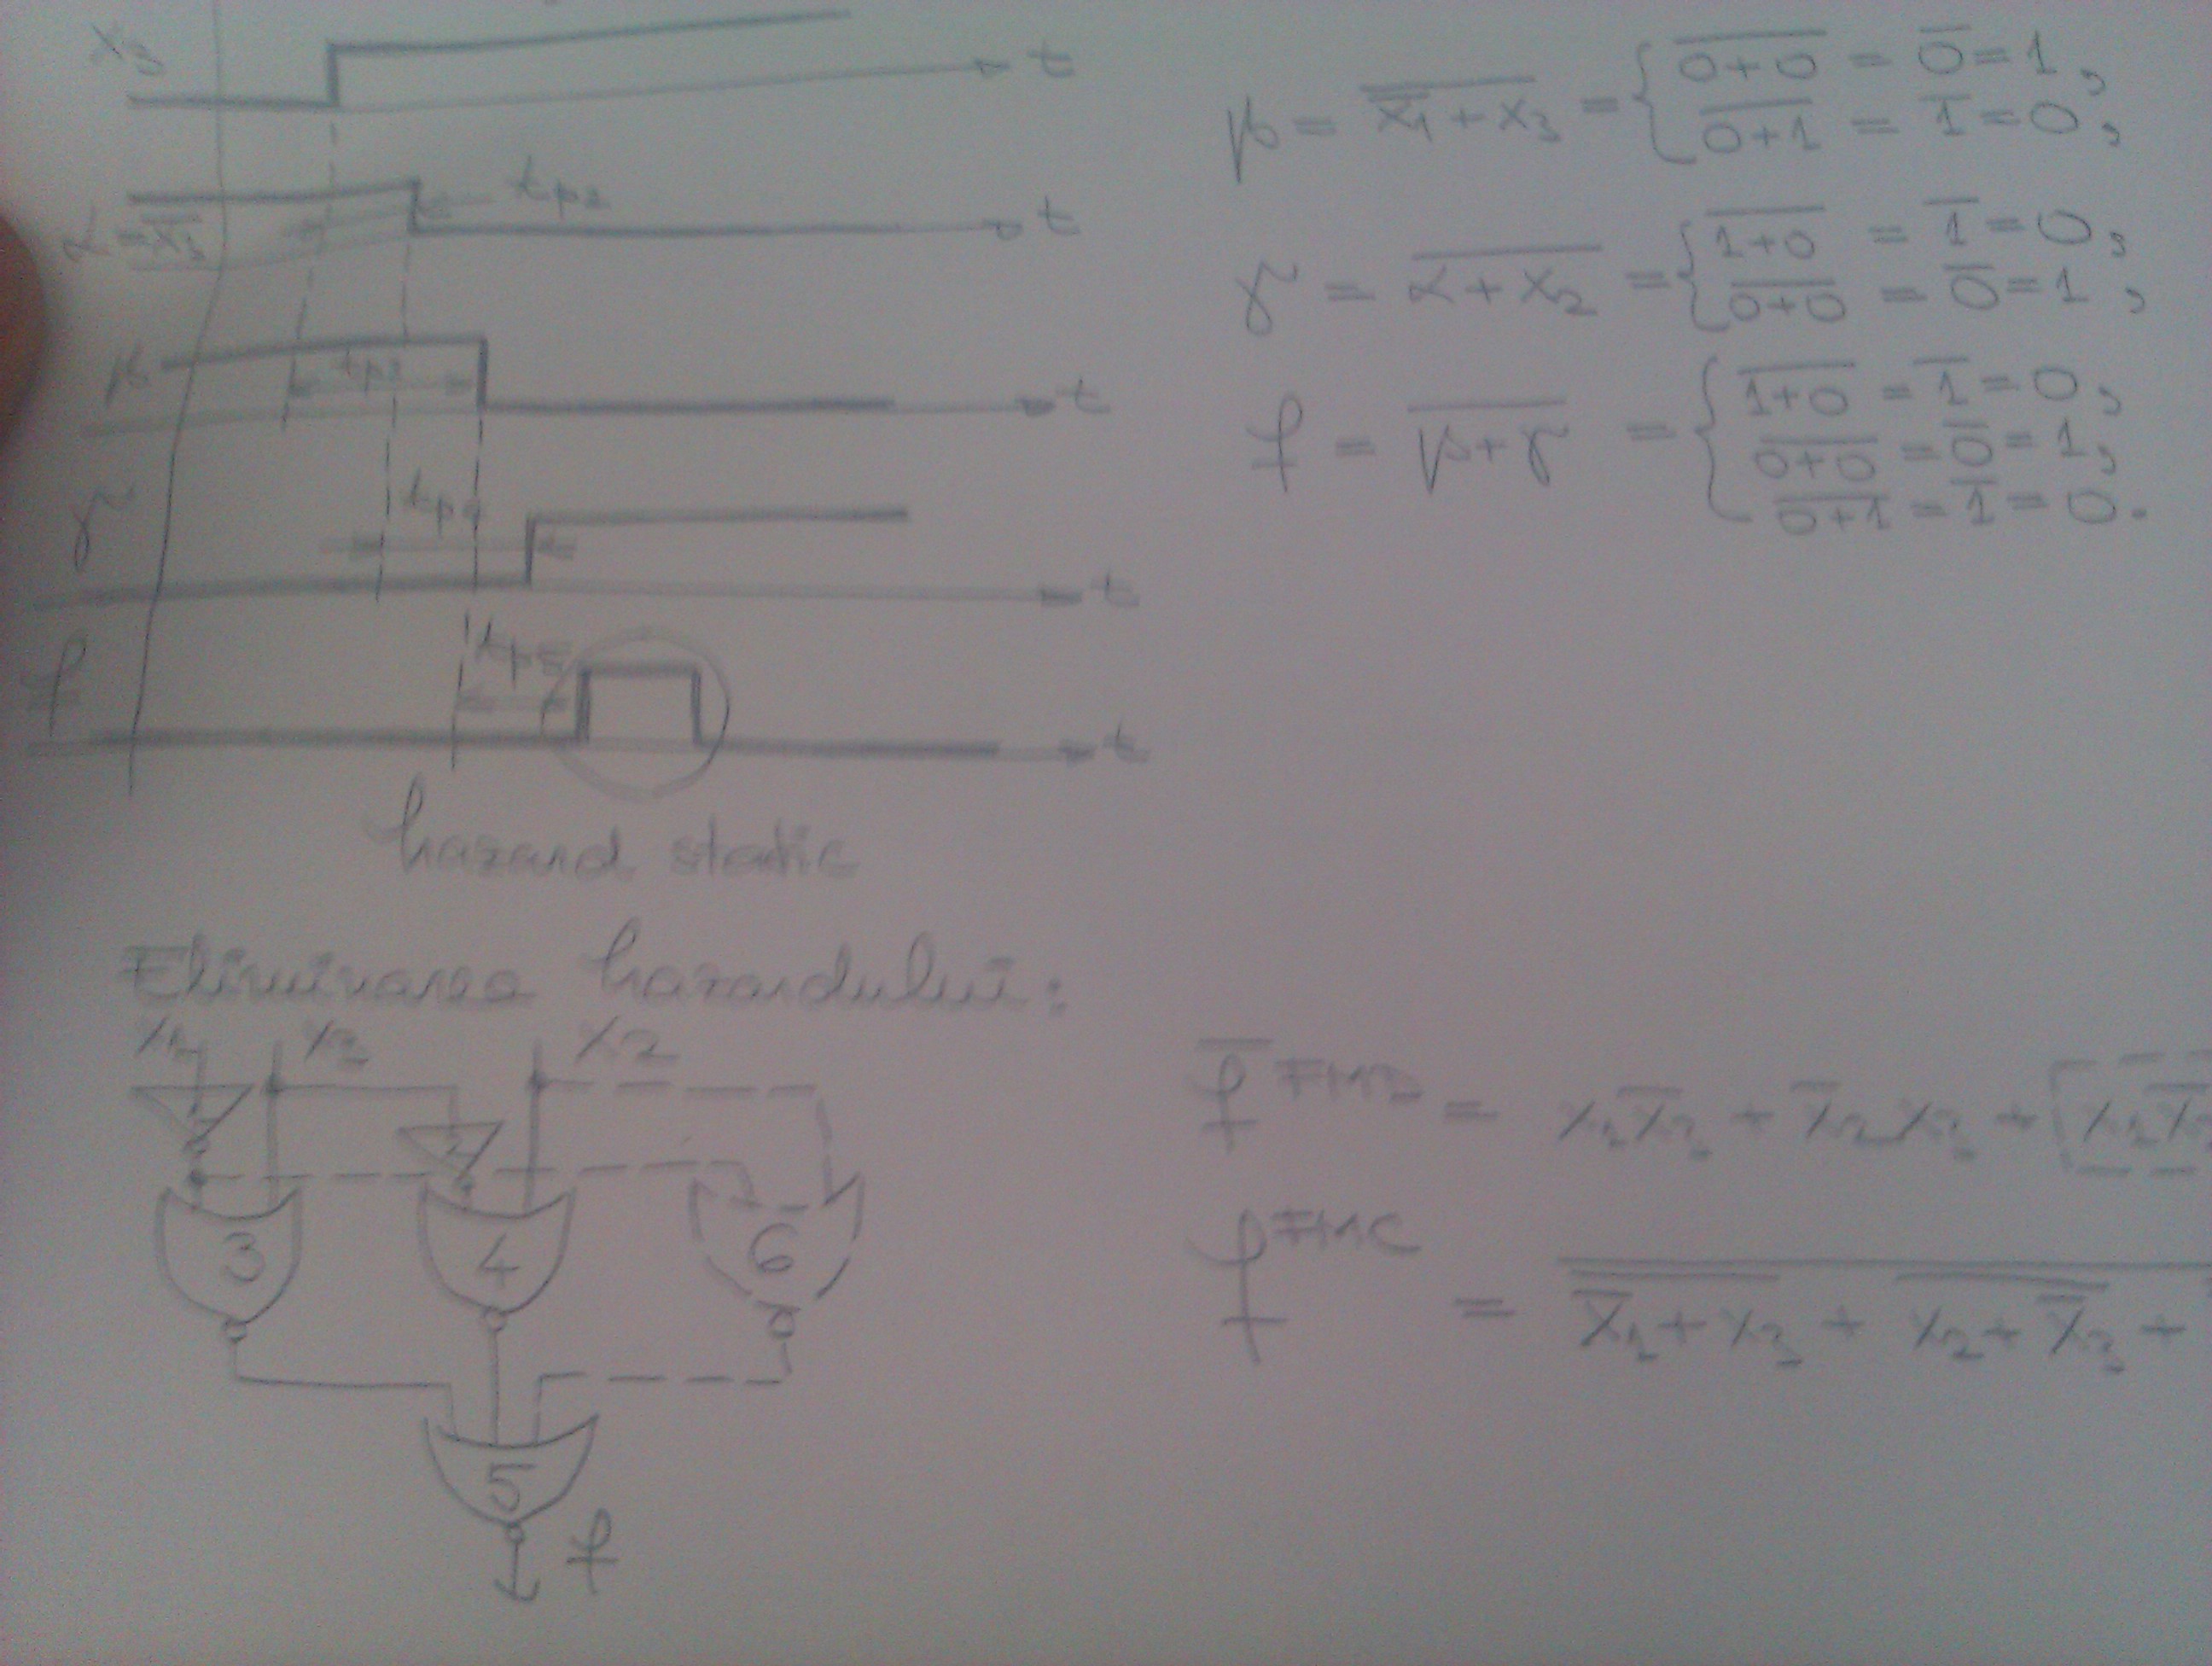 x₃ t
α = x̄₃ tp2 t
β tp3 t
γ tp4 t
f tp5 t
hazard static
β = \overline{\overline{x₁} + x₃} = { \overline{0+0} = \overline{0} = 1,
\overline{0+1} = \overline{1} = 0,
γ = \overline{α + x₂} = { \overline{1+0} = \overline{1} = 0,
\overline{0+0} = \overline{0} = 1,
f = \overline{β + γ} = { \overline{1+0} = \overline{1} = 0,
\overline{0+0} = \overline{0} = 1,
\overline{0+1} = \overline{1} = 0.
Eliminarea hazardului:
x₁ x₃ x₂
3 4 6
5
f
\overline{f} = x₁\overline{x₃} + \overline{x₂}x₃ +
f = \overline{\overline{\overline{x₁} + x₃} + \overline{x₂ + \overline{x₃}} +